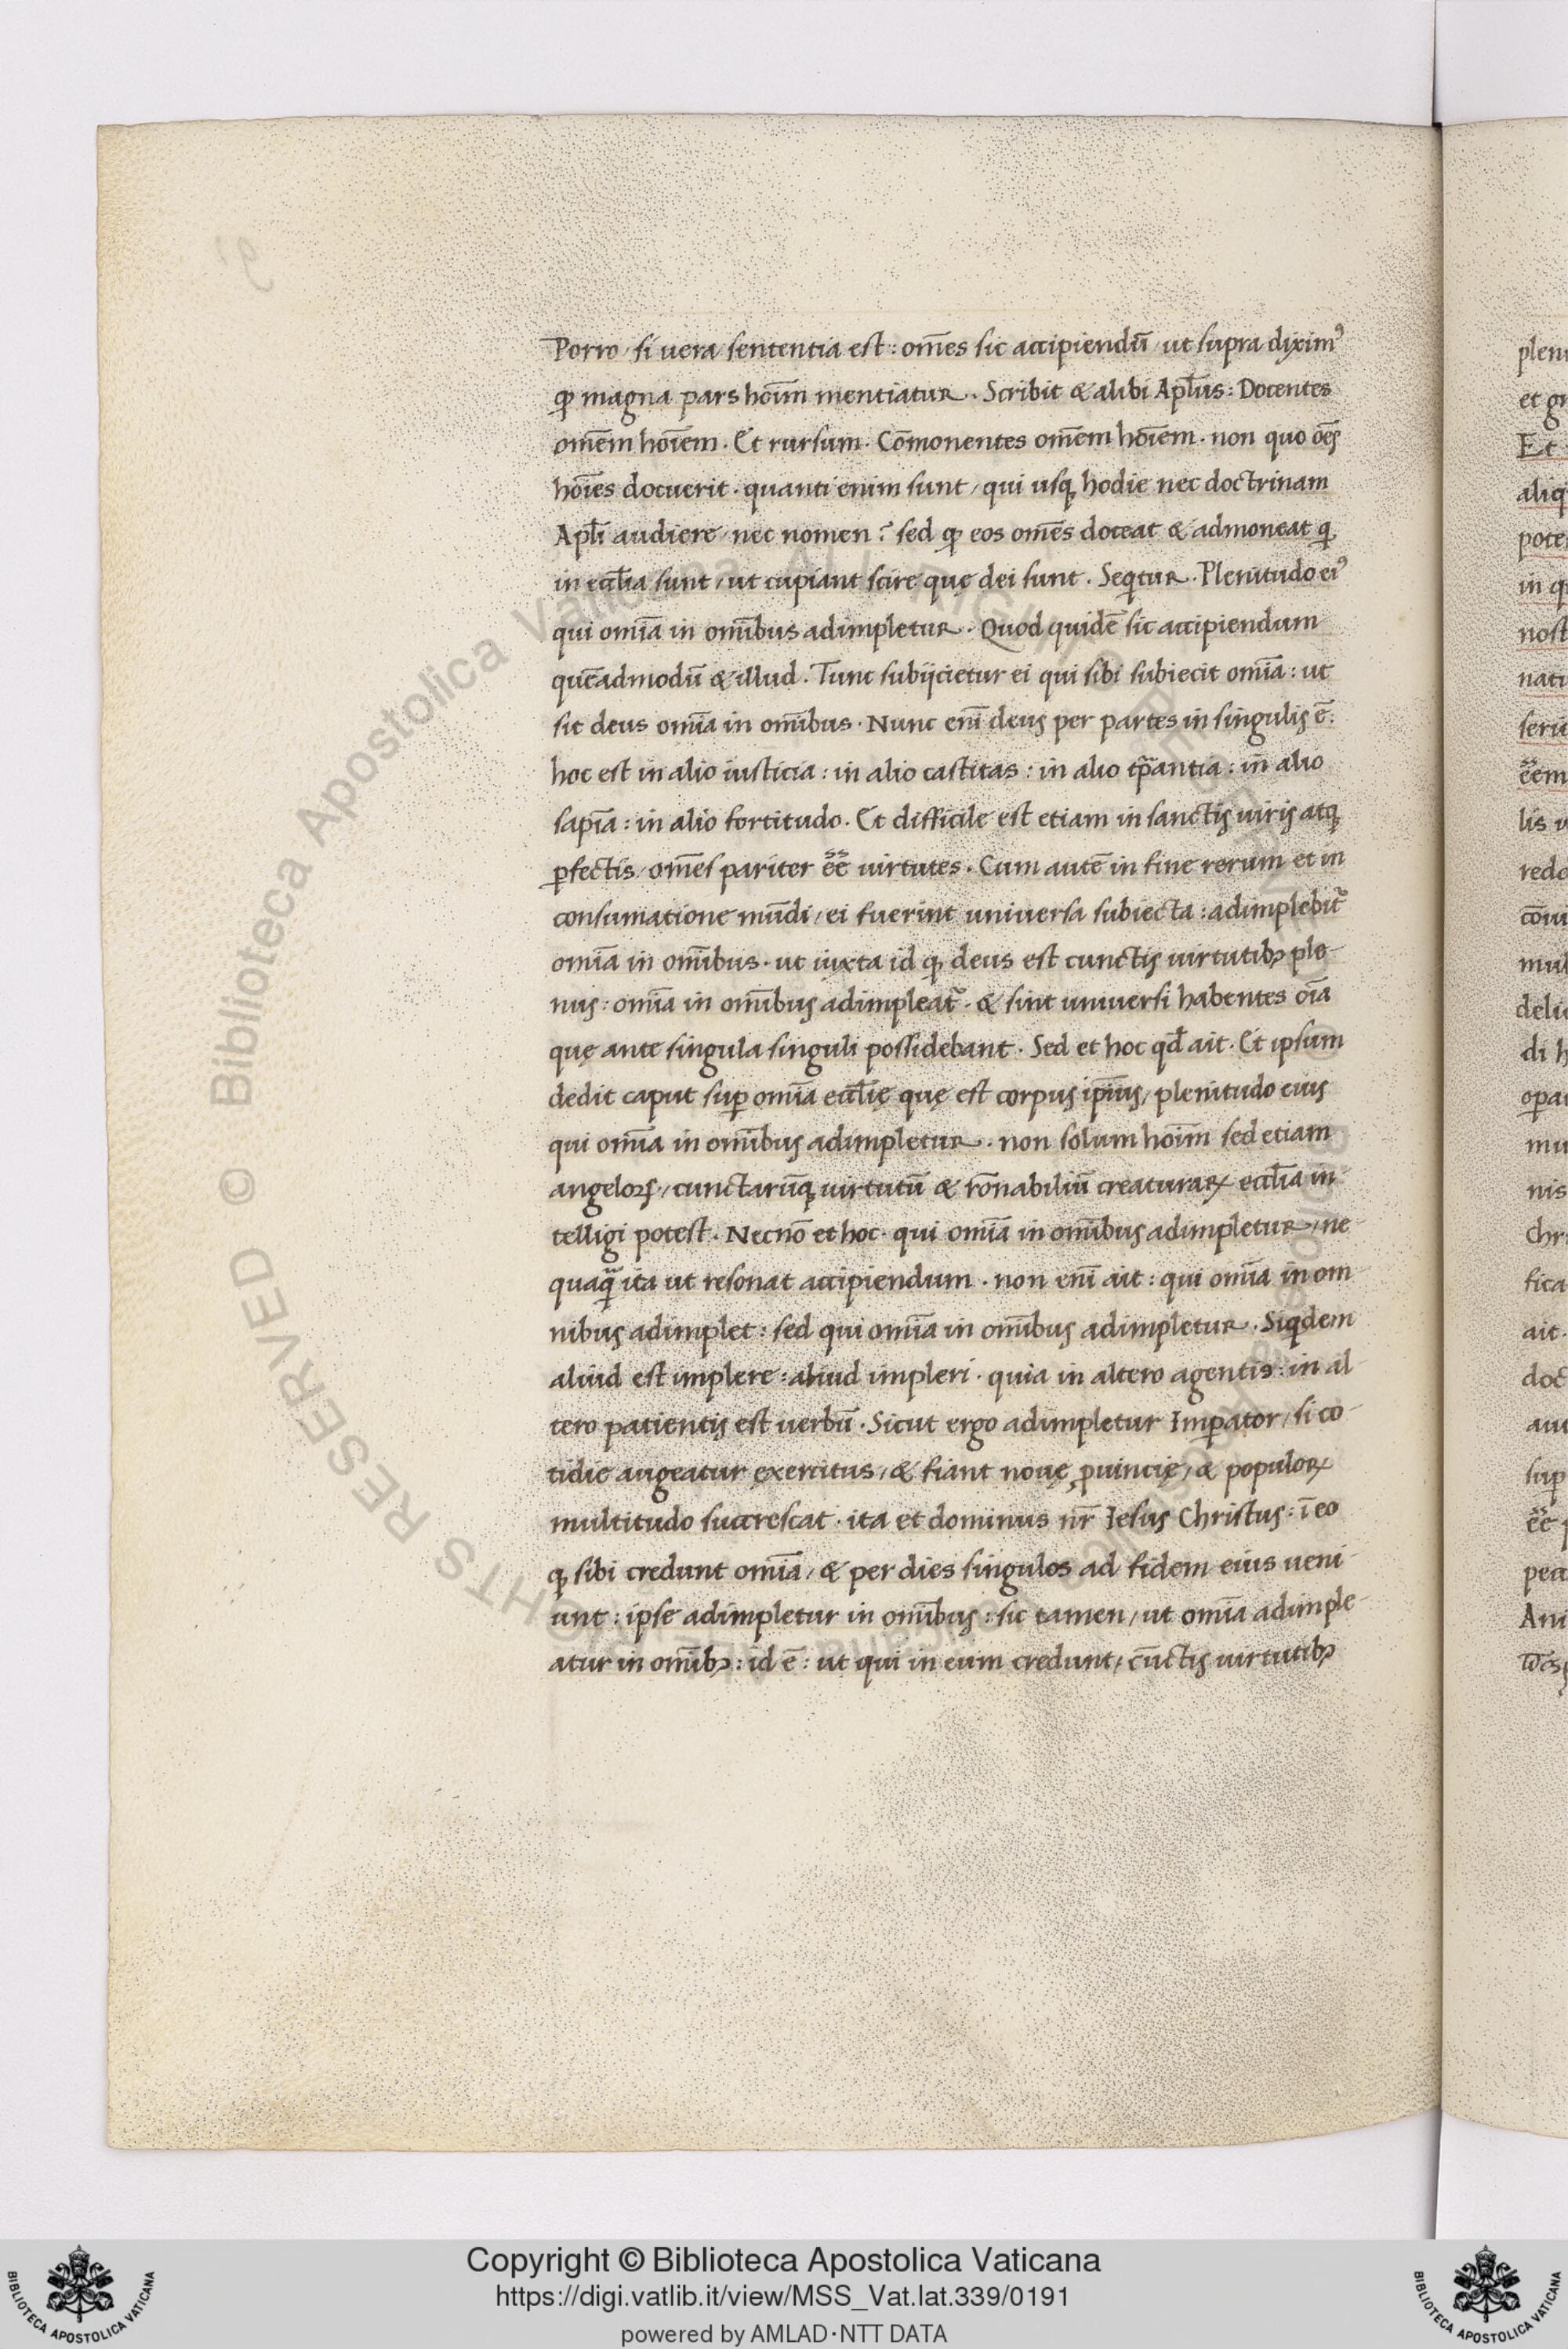 Porro / si uera sententia est : om̄es sic accipiendū / ut supra diximꝰ
ꝙ magna pars hoīm mentiatur . Scribit & alibi Apl̄us : Docentes
om̄em hoīem . Et rursum . Cōmonentes om̄em hoīem . non quo oēs
hoīes docuerit . quanti enim sunt / qui usq; hodie nec doctrinam
Apl̄i audiere / nec nomen ? sed ꝙ eos om̄es doceat & admoneat q
in eccl̄ia sunt / ut cupiant scire quę dei sunt . Seq̇tur . Plenitudo eiꝰ
qui omīa in omībus adimpletur . Quod quidē sic accipiendum
quēadmodū & illud . Tunc subijcietur ei qui sibi subiecit omīa : ut
sit deus omīa in omībus . Nunc enī deus per partes in singulis ē :
hoc est in alio iusticia : in alio castitas : in alio tꝑantia : in alio
sapīa : in alio fortitudo . Et difficile est etiam in sanctis uiris atq;
ꝑfectis / om̄es pariter ēē uirtutes . Cum autē in fine rerum et in
consumatione mūdi / ei fuerint uniuersa subiecta : adimplebit᷑
omīa in omībus . ut iuxta id ꝙ deus est cunctis uirtutibꝫ ple-
nus : omīa in omībus adimpleat᷑ . & sint uniuersi habentes oīa
quę ante singula singuli possidebant . Sed et hoc qđ ait . Et ipsum
dedit caput suꝑ omīa eccl̄ię quę est corpus ipīus / plenitudo eius
qui omīa in omībus adimpletur . non solum hoīm sed etiam
angeloꝝ / cunctarūq; uirtutū & rōnabiliū creaturaꝝ eccl̄ia in-
telligi potest . Necnō et hoc . qui omīa in omībus adimpletur / ne-
quaq̄ ita ut resonat accipiendum . non enī ait : qui omīa in om-
nibus adimplet : sed qui omīa in omībus adimpletur . Siqdem
aliud est implere : aliud impleri . quia in altero agentis : in al-
tero patientis est uerbū . Sicut ergo adimpletur Imꝑator / si co-
tidie augeatur exercitus / & fiant nouę ꝓuincię / & populoꝝ
multitudo succrescat . ita et dominus nr̄ Iesus Christus : ī eo
ꝙ sibi credunt omīa / & per dies singulos ad fidem eius ueni-
unt : ipse adimpletur in omībus : sic tamen / ut omīa adimple-
atur in omībꝫ : id ē : ut qui in eum credunt / cūctis uirtutibꝫ
© Biblioteca Apostolica Vaticana
Copyright © Biblioteca Apostolica Vaticana
https://digi.vatlib.it/view/MSS_Vat.lat.339/0191
powered by AMLAD·NTT DATA
BIBLIOTECA APOSTOLICA VATICANA
BIBLIOTECA APOSTOLICA VATICANA